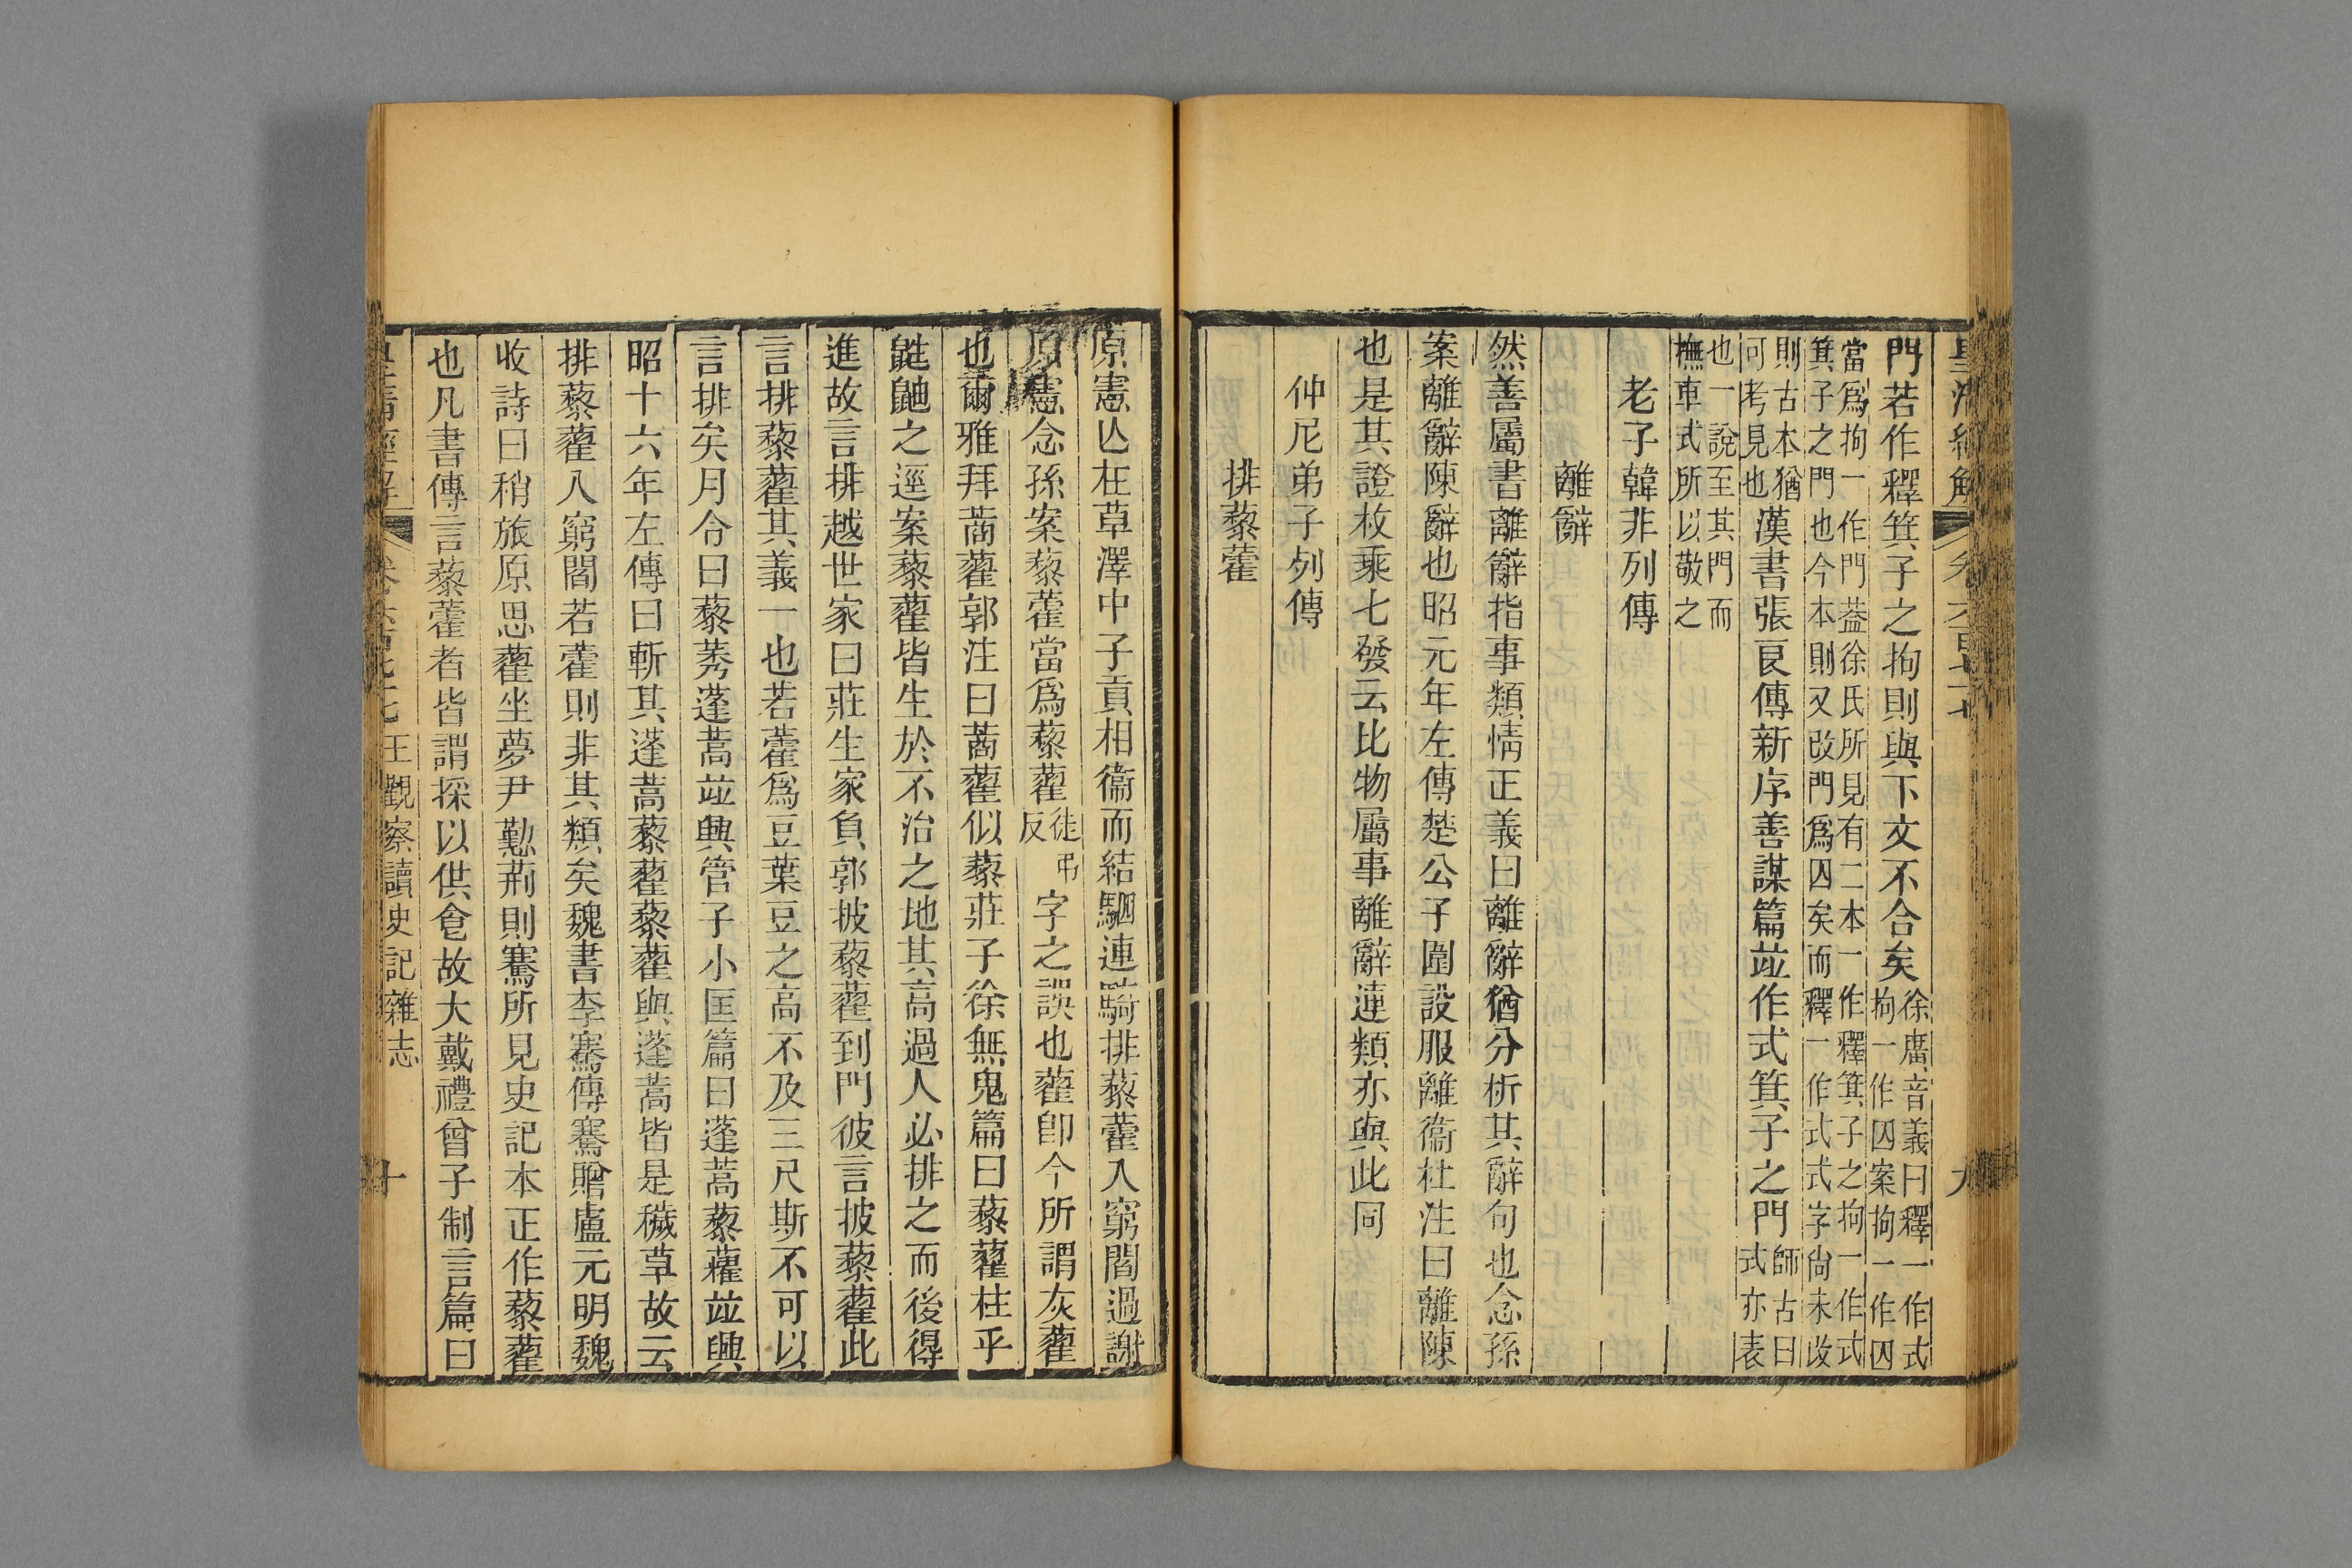 皇清經解 卷六百七十七 九
門若作釋箕子之拘則與下文不合矣徐廣音義曰釋一作式拘一作囚案拘一作囚
當爲拘一作門葢徐氏所見有二本一作釋箕子之拘一作式箕子之門也今本則又改門爲囚矣而釋一作式式字尙未改
則古本猶可考見也漢書張良傳新序善謀篇竝作式箕子之門師古曰式亦表
也一說至其門而撫車式所以敬之
老子韓非列傳
離辭
然善屬書離辭指事類情正義曰離辭猶分析其辭句也念孫
案離辭陳辭也昭元年左傳楚公子圍設服離衞杜注曰離陳
也是其證枚乘七發云比物屬事離辭連類亦與此同
仲尼弟子列傳
排藜藿
原憲亾在草澤中子貢相衞而結駟連騎排藜藿入窮閻過謝
原憲念孫案藜藿當爲藜藋徒弔反字之誤也藋卽今所謂灰藋
也爾雅拜蔏藋郭注曰蔏藋似藜莊子徐無鬼篇曰藜藋柱乎
鼪鼬之逕案藜藋皆生於不治之地其高過人必排之而後得
進故言排越世家曰莊生家負郭披藜藋到門彼言披藜藋此
言排藜藋其義一也若藿爲豆葉豆之高不及三尺斯不可以
言排矣月令曰藜莠蓬蒿竝興管子小匡篇曰蓬蒿藜藋竝興
昭十六年左傳曰斬其蓬蒿藜藋藜藋與蓬蒿皆是穢草故云
排藜藋入窮閻若藿則非其類矣魏書李騫傳騫贈盧元明魏
收詩曰稍旅原思藋坐夢尹懃荊則騫所見史記本正作藜藋
也凡書傳言藜藿者皆謂採以供食故大戴禮曾子制言篇曰
皇清經解 卷六百七十七 王觀察讀史記雜志 十